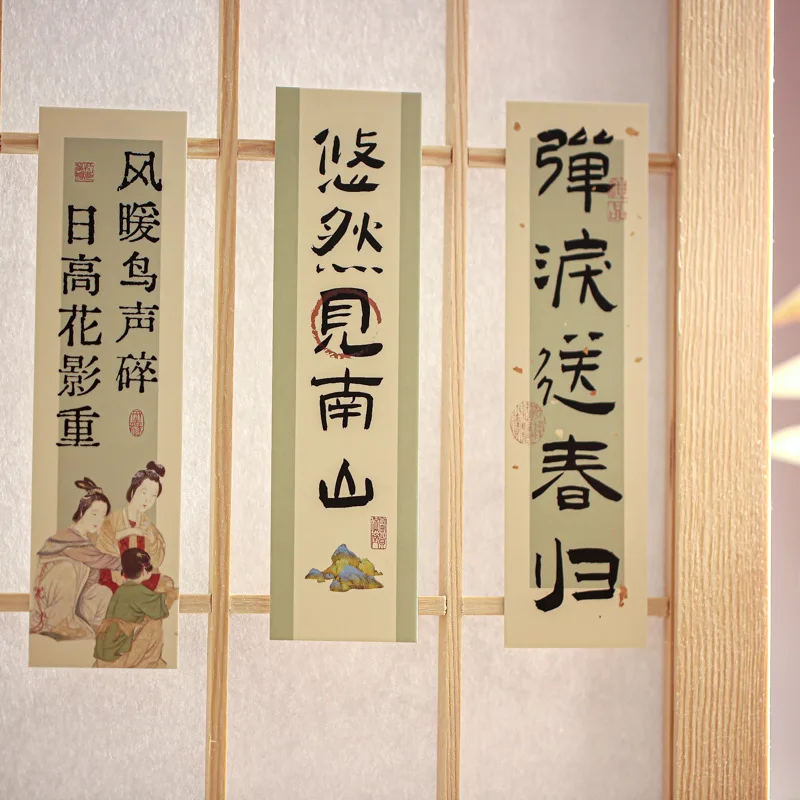 风暖鸟声碎
日高花影重
悠然見南山
彈淚送春归